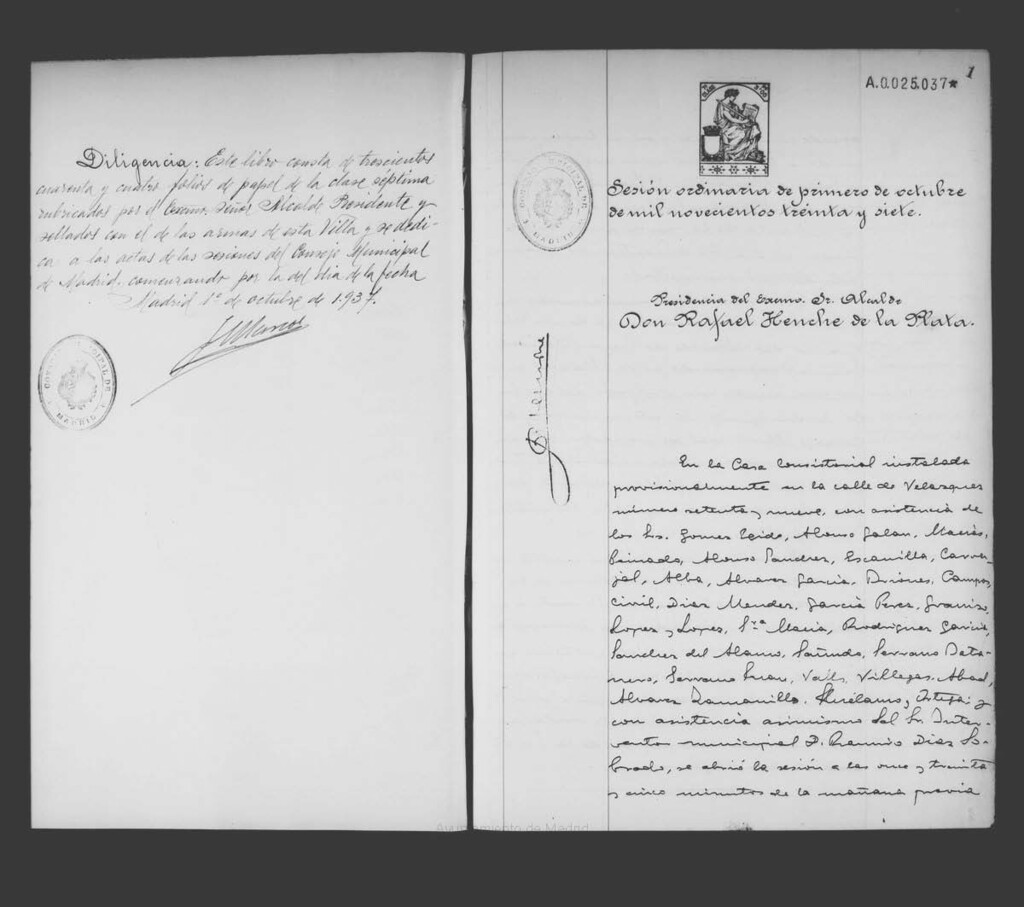 Diligencia: Este libro consta de trescientos
cuarenta y cuatro folios de papel de la clase séptima
rubricados por el Excmo. Señor Alcalde Presidente y
sellados con el de las armas de esta Villa y se dedi-
ca a las actas de las sesiones del Consejo Municipal
de Madrid comenzando por la del día de la fecha
Madrid 1º de octubre de 1.937.
CONSEJO MUNICIPAL DE
MADRID
1
A.0.025.037*
CONSEJO MUNICIPAL DE
MADRID
Sesión ordinaria de primero de octubre
de mil novecientos treinta y siete.
Presidencia del Excmo. Sr. Alcalde
Don Rafael Henche de la Plata.
En la Casa Consistorial instalada
provisionalmente en la calle de Velazquez
número setenta y nueve, con asistencia de
los Srs. Gomez Egido, Alonso Galan, Macias,
Peinado, Alonso Sanchez, Escamilla, Carva-
jal, Alba, Alvarez Garcia, Briones, Campos,
Civil, Diaz Mendez, Garcia Perez,
Lopez y Lopez, Sra Macia, Rodriguez Garcia,
Sanchez del Alamo, Sañudo, Serrano
Serrano Juan, Valls, Villegas, Abad,
Alvarez y
con asistencia asimismo del Sr. Inter-
ventor municipal D. Diaz So-
brado, se abrió la sesión a las once y treinta
y cinco minutos de la mañana previa
Ayuntamiento de Madrid